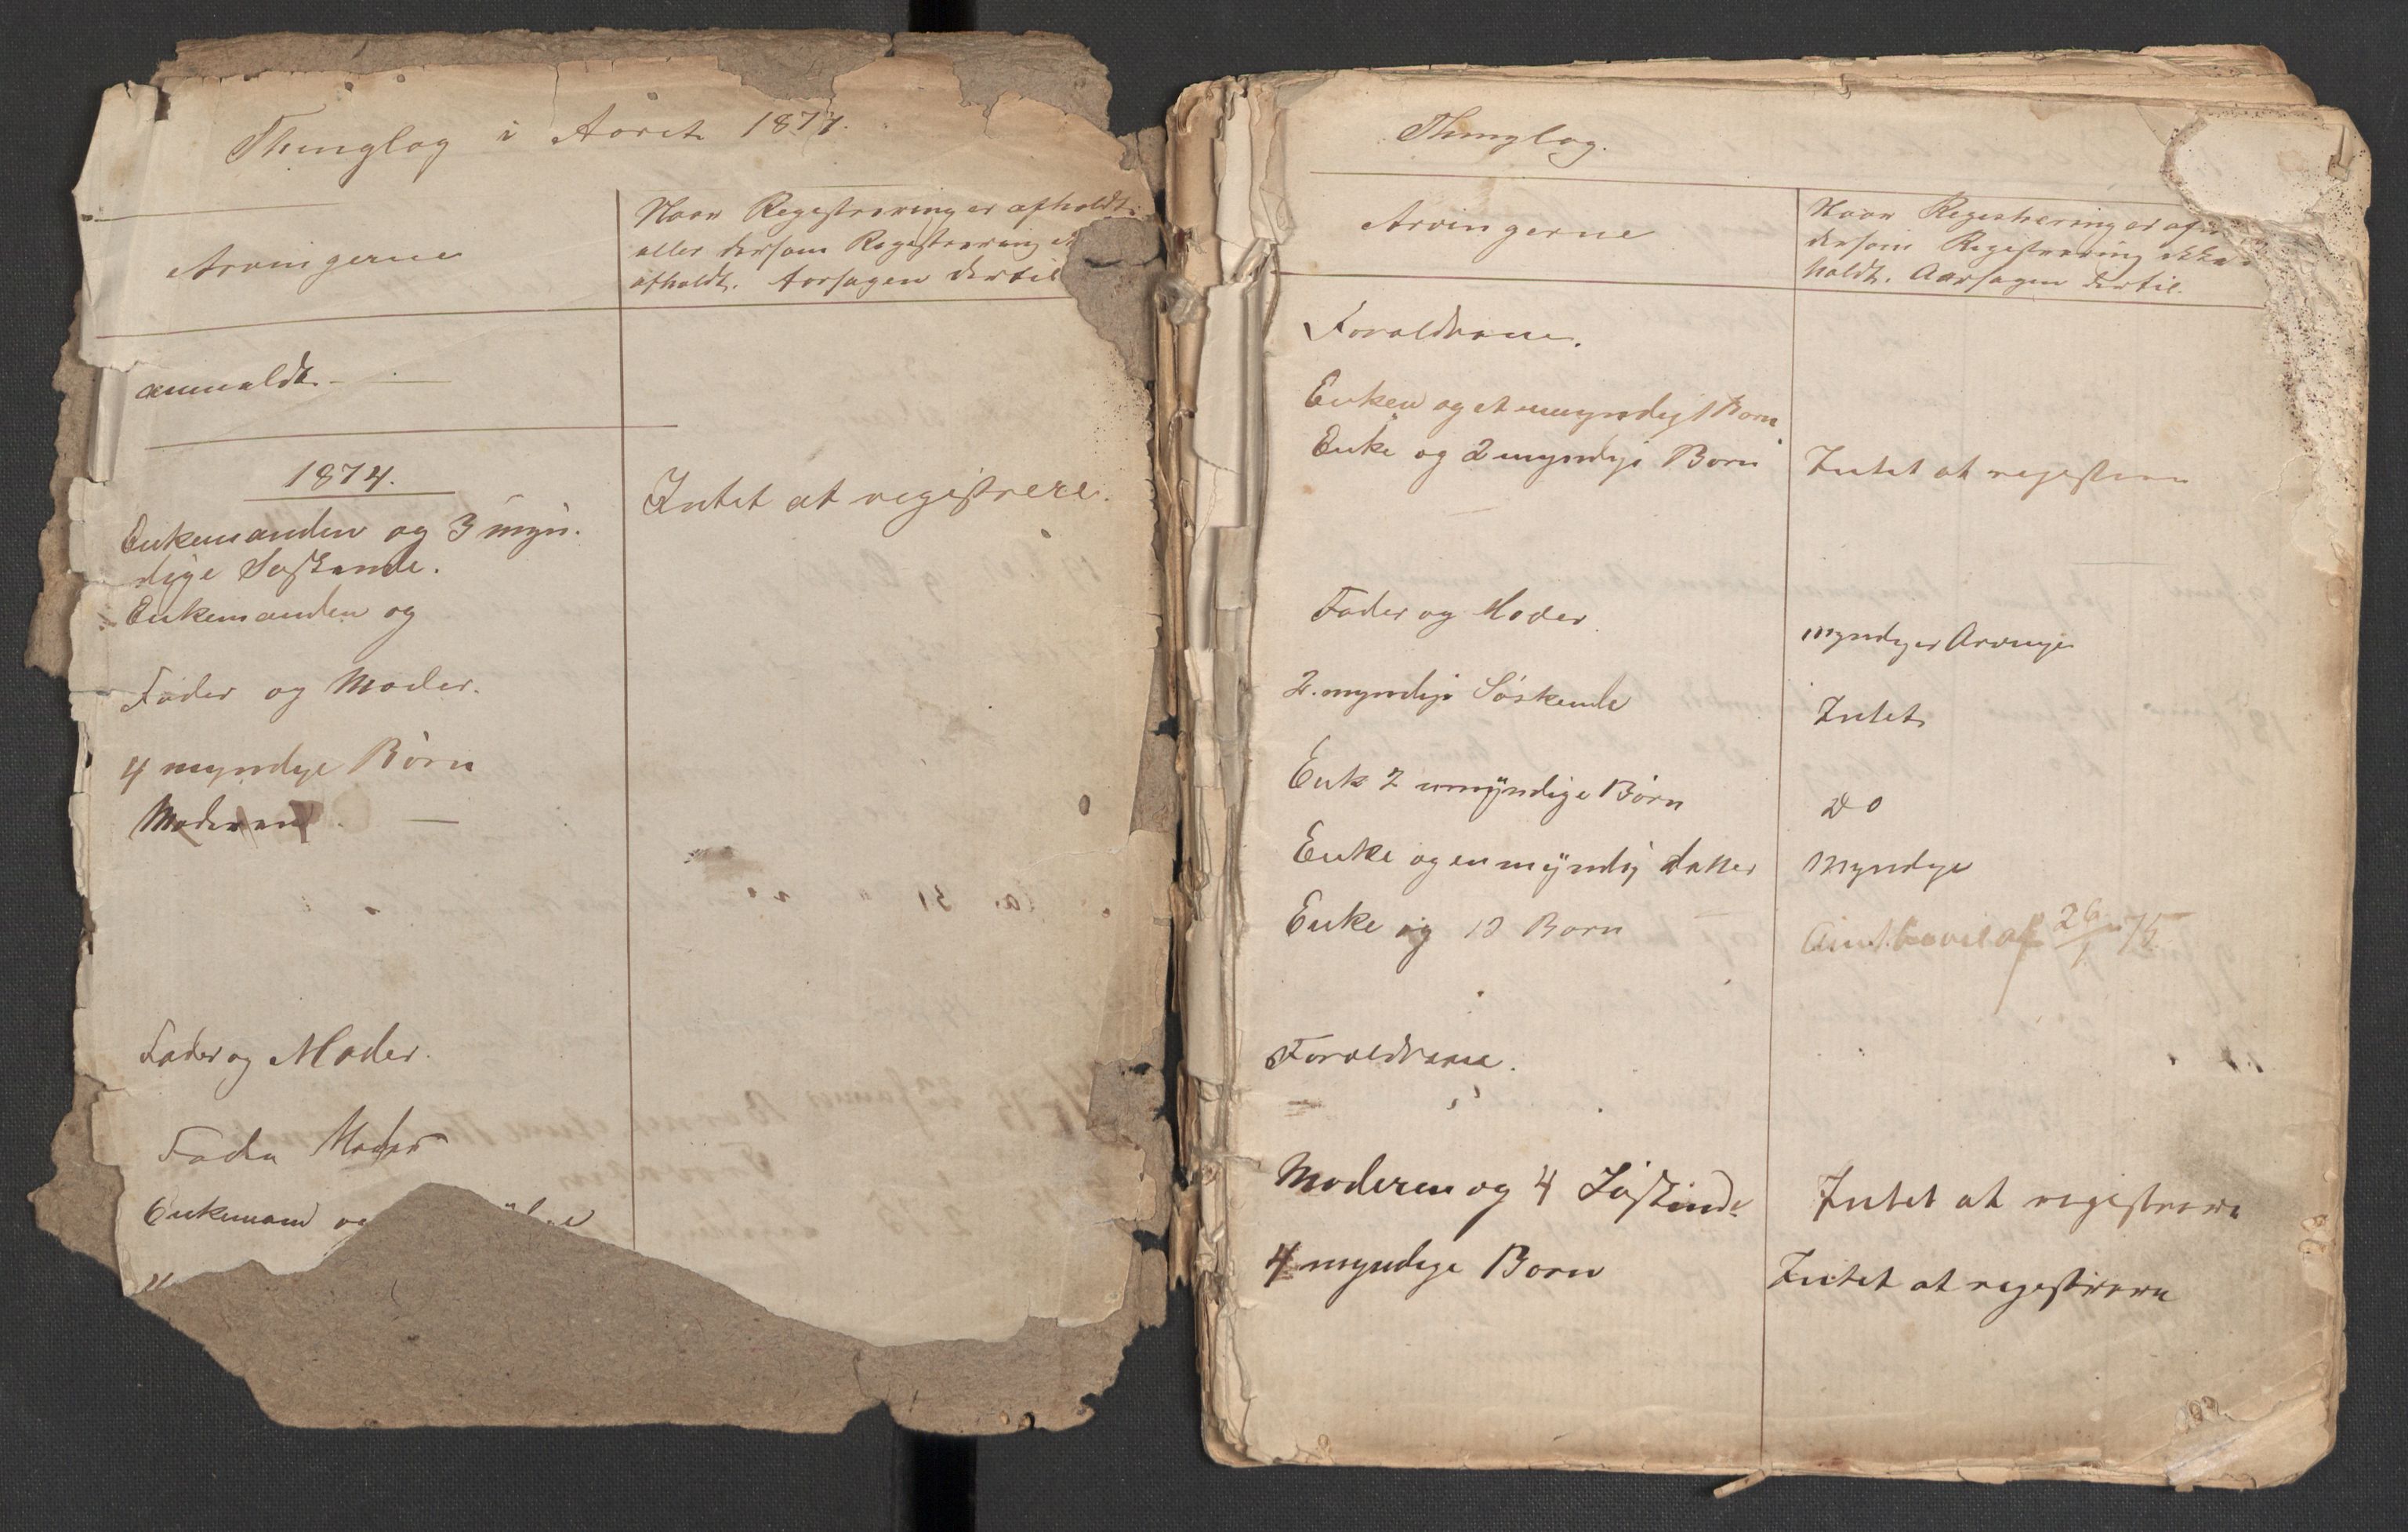 Thinglag i Aaret 1877.
Arvingerne
Naar Registrering er afholdt.
eller dersom Registrering
afholdt. Aarsagen dertil
anmeldt.
1874.
Enkemanden og 3 myn-
dige Søskende.
Intet at registrere.
Enkemanden og
Fader og Moder.
4 myndige Börn
Moderen
Fader og Moder.
Fader Moder
Enkemand og
Thinglag.
Arvingerne
Naar Registrering er
dersom Registrering ikke
holdt. Aarsagen dertil.
Forældrene.
Enken og et umyndigt Barn
Enke og 2 myndige Born
Intet at registrere
Fader og Moder
myndiger Arvinge
2. myndige Söskende
Intet
Enk 2 umÿndige Börn
Do
Enke og en mÿndig Datter
Myndige
Enke og 10 Born
Amtbevil af 26/1 75
Forældrene.
Moderen og 4 Söskinde
Intet at registrere
4 myndige Born
Intet at registrere